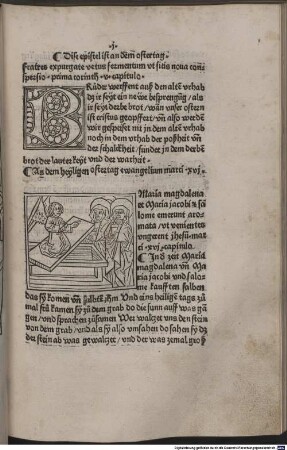 ·v·
¶ Dise epistel ist an dem ostertag·
Fratres expurgate vetus fermentum vt sitis noua com
spersio· prima corinth· v· capitulo·
BRüder werffent auß den alten vrhab
dz ir seyt ein newe besprengung/ als
ir seyt derbe brot/ wan vnser ostern
ist cristus geopffert/ vnd also werdē
wir gespeiset nit in dem alten vrhab
noch in dem vrhab der poßheit vnnd
der schalckheit/ sunder in dem derbē
brot der lauterkeyt vnd der warheit·
¶ An dem heyligen ostertag ewangelium marci ·xvj·
MAria magdalena
et Maria iacobi et sa
lome emerunt aro-
mata/ vt venientes
vngerent jhesū· mar
ci ·xvj· capitulo·
¶ In d zeit Maria
magdalena vnd Ma
ria jacobi vnd salo-
me kaufften salben
das sy komen vnd salbtē jhm Vnd eins heiligē tags zū
mal frü kamen sy zū dem grab do die sunn auff was gā
gen/ vnd sprachen zūsamen Wer waltzet vns den stein
von dem grab/ vnd als sy also vmsahen do sahen sy dz
der stein ab was gewaltzet/ vnd der was zemal groß